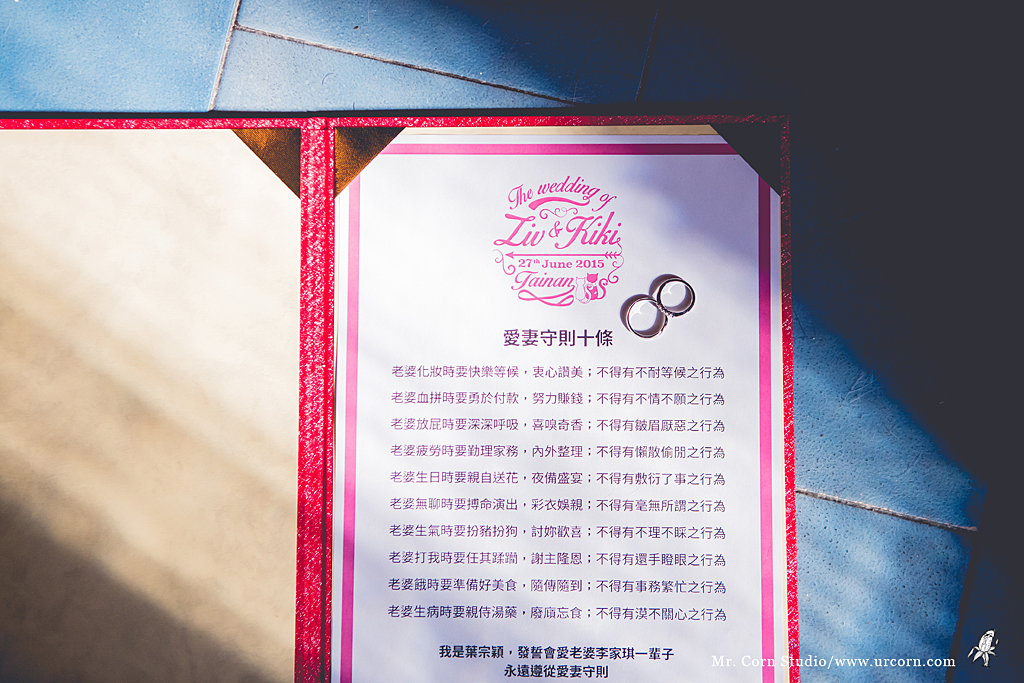 The wedding of
Liv & Kiki
27th June 2015
Tainan
愛妻守則十條
老婆化妝時要快樂等候，衷心讚美；不得有不耐等候之行為
老婆血拼時要勇於付款，努力賺錢；不得有不情不願之行為
老婆放屁時要深深呼吸，喜嗅奇香；不得有皺眉厭惡之行為
老婆疲勞時要勤理家務，內外整理；不得有懶散偷閒之行為
老婆生日時要親自送花，夜備盛宴；不得有敷衍了事之行為
老婆無聊時要搏命演出，彩衣娛親；不得有毫無所謂之行為
老婆生氣時要扮豬扮狗，討妳歡喜；不得有不理不睬之行為
老婆打我時要任其蹂躪，謝主隆恩；不得有還手瞪眼之行為
老婆餓時要準備好美食，隨傳隨到；不得有事務繁忙之行為
老婆生病時要親侍湯藥，廢寢忘食；不得有漠不關心之行為
我是葉宗穎，發誓會愛老婆李家琪一輩子
永遠遵從愛妻守則
Mr. Corn Studio/www.urcorn.com